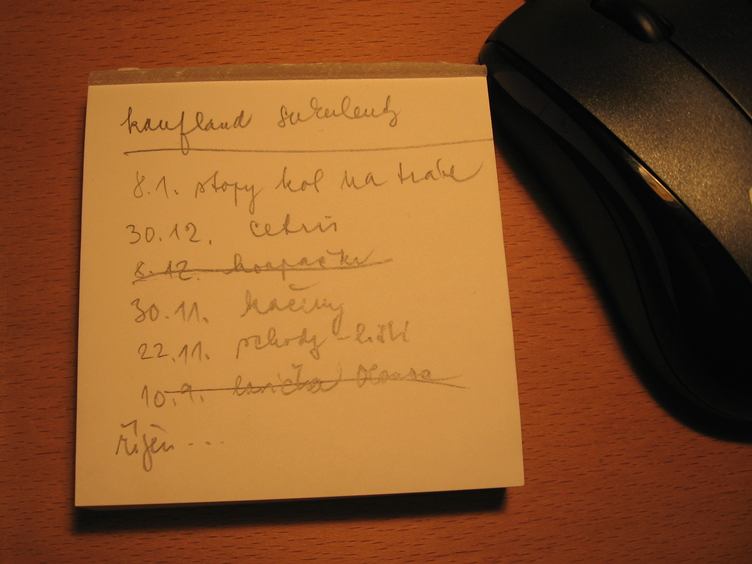 kaufland sukulenty
8.1. stopy kol na trávě
30.12. cetris
8.12.
30.11. kačeny
22.11. schody - listí
10.9.
říjen ...